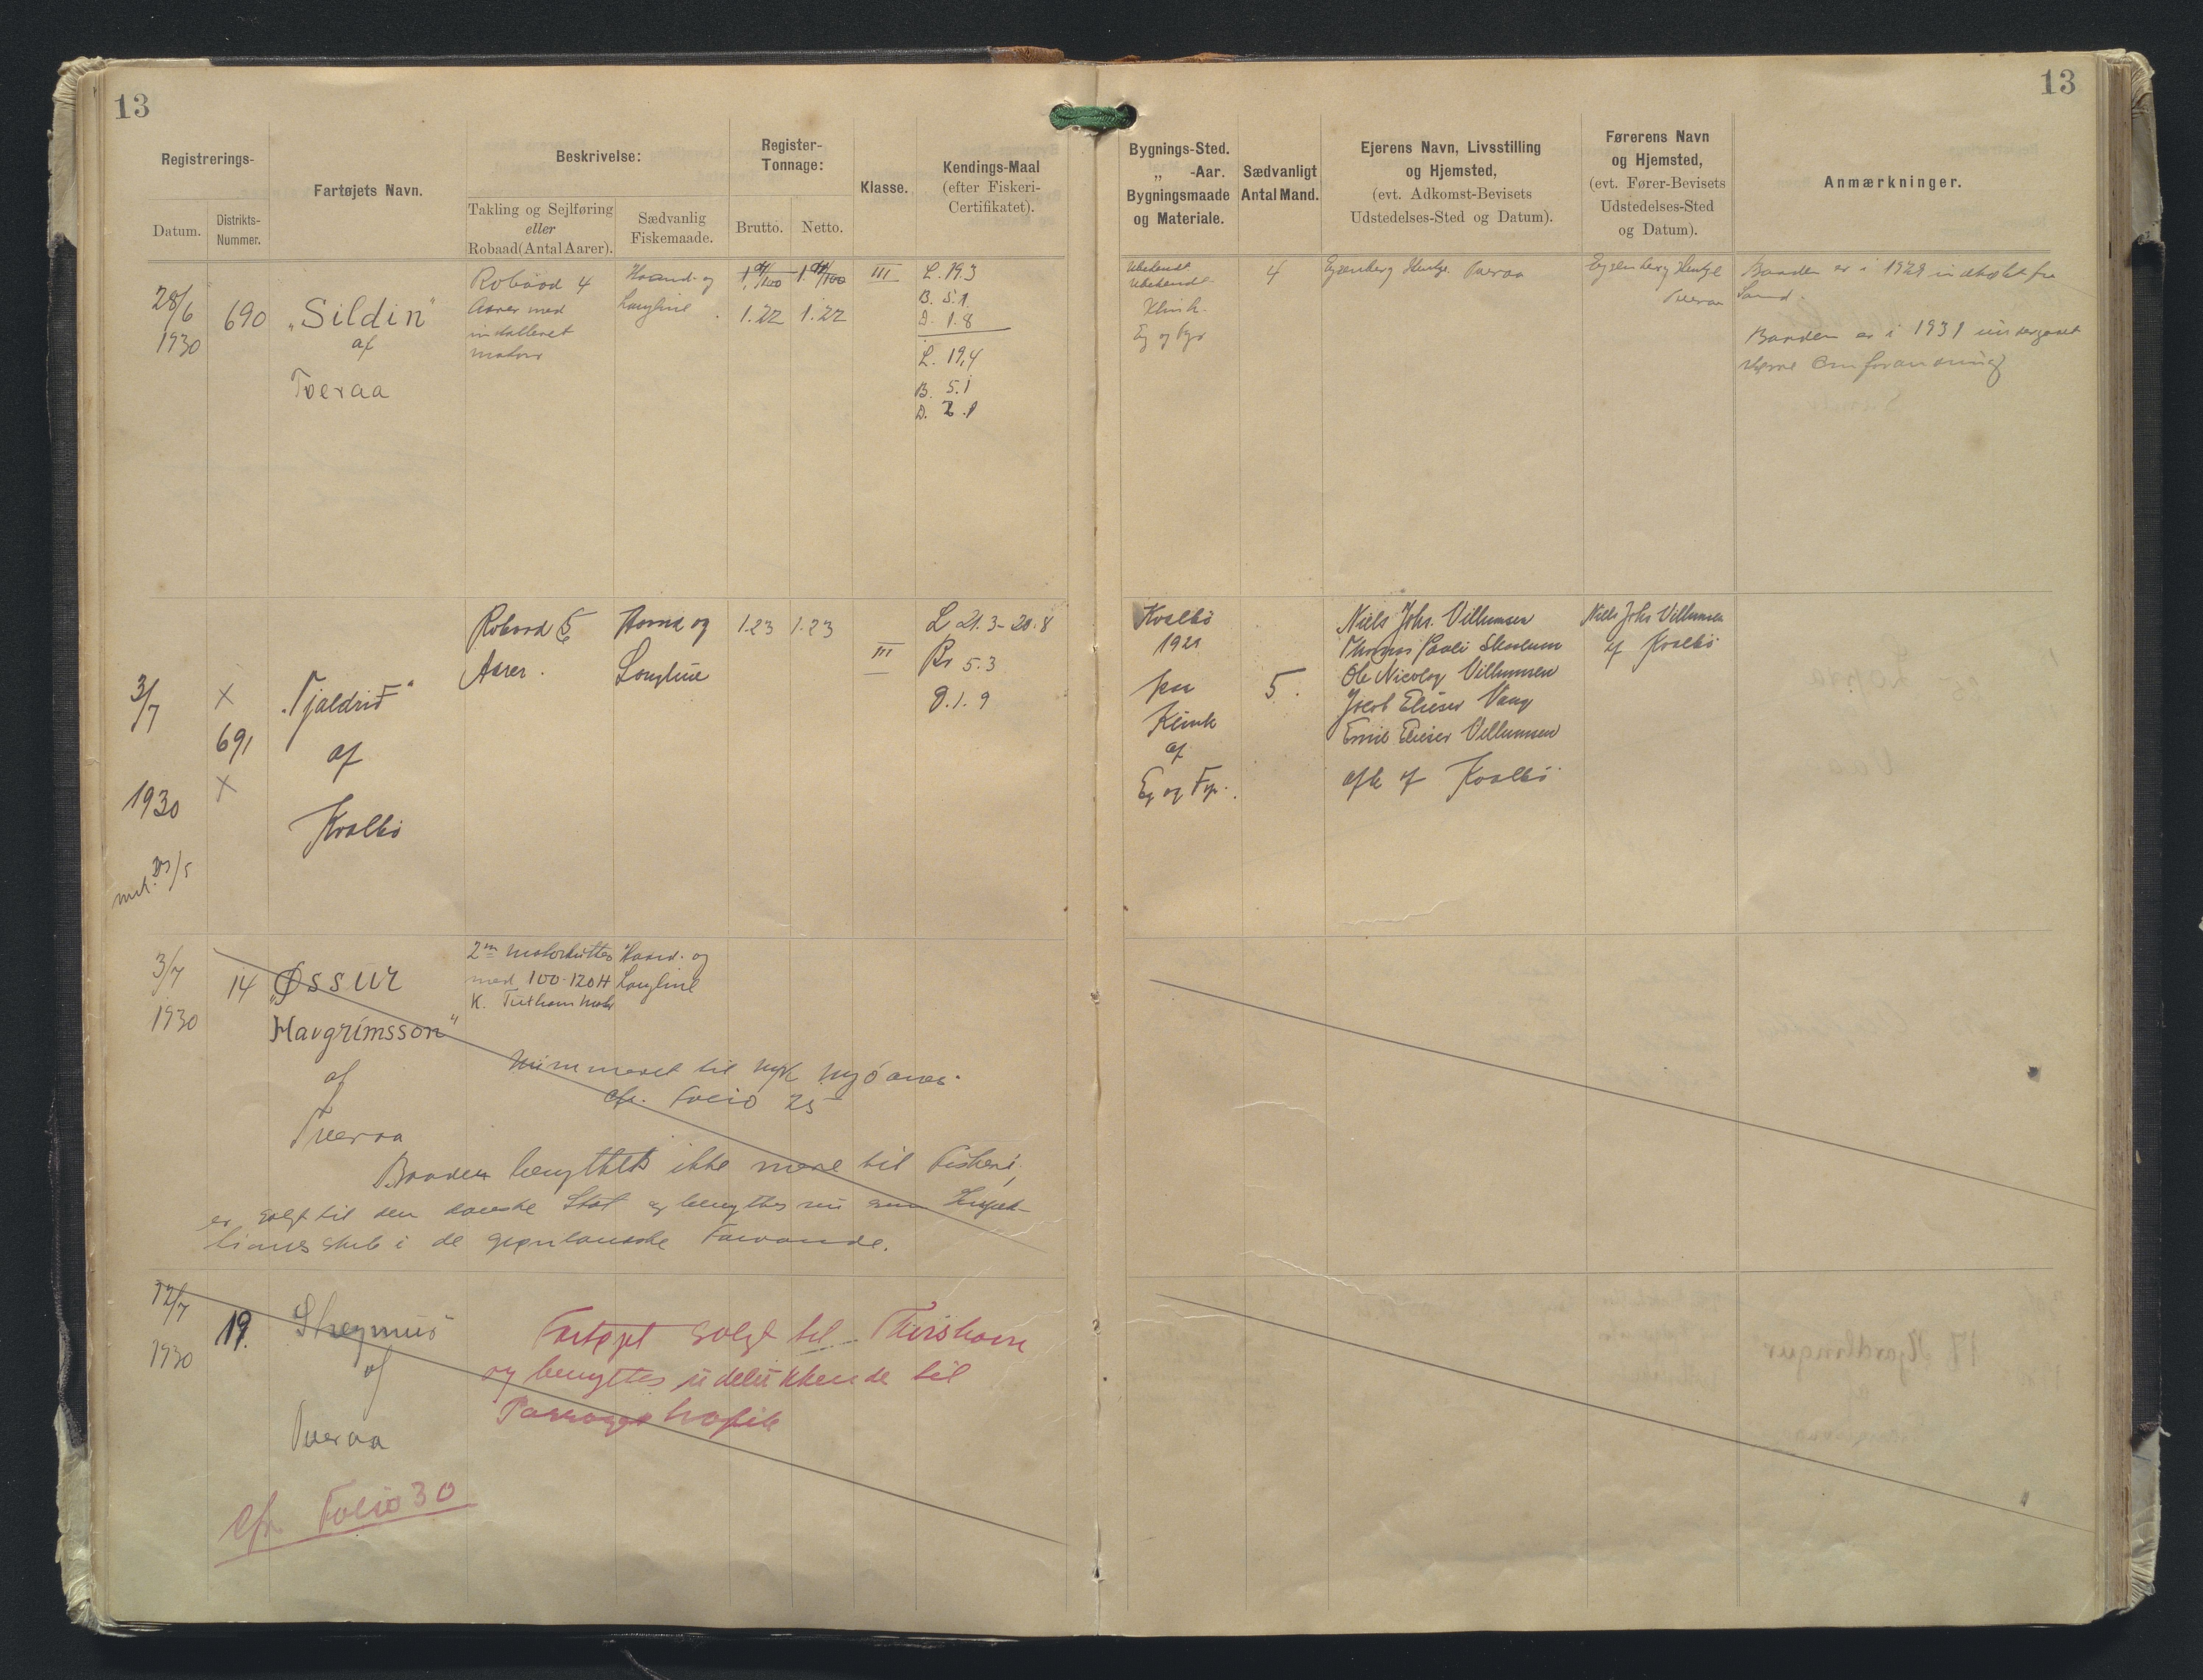 13
13
Registrerings-
Datum.
Distrikts-
Nummer.
Fartøjets Navn.
Beskrivelse:
Takling og Sejlføring
eller
Robaad (Antal Aarer).
Sædvanlig
Fiskemaade.
Register-
Tonnage:
Brutto.
Netto.
Klasse.
Kendings-Maal
(efter Fiskeri-
Certifikatet).
Bygnings-Sted.
„ -Aar.
Bygningsmaade
og Materiale.
Sædvanligt
Antal Mand.
Ejerens Navn, Livsstilling
og Hjemsted,
(evt. Adkomst-Bevisets
Udstedelses-Sted og Datum).
Førerens Navn
og Hjemsted,
(evt. Fører-Bevisets
Udstedelses-Sted
og Datum).
Anmærkninger.
28/6
1930
690
„Sildin"
af
Tveraa
Robaad 4
Aarer med
installeret
motor
Haand- og
Langline
1.22
1.22
III
L. 19.3
B. 5.1
D. 1.8
L. 19,4
B. 5.1
D. 2.1
Ubekendt
Ubekendt
Klink.
Eg og Fyr
4
Eyzenberg Hentze. Tveraa
Eyzenberg Hentze
Tveraa
Baaden er i 1929 indkøbt fra
Sand.
Baaden er i 1931 undergaaet
større Omforandring
3/7
1930
X
691
X
„Tjaldrið"
af
Kvalbø
Robaad 5
Aarer.
Haand og
Langline
1.23
1.23
III
L 21.3 - 20.8
Br 5.3
D. 1. 9
Kvalbø
1921
paa
Klink
af
Eg og Fyr.
5.
Niels Johs. Villumsen
Thomas Pauli
Ole Nicolay Villumsen
Jacob Elieser Vang
Emil Elieser Villumsen
alle af Kvalbø
Niels Johs Villumsen
af Kvalbø
3/7
1930
14
„Øssur
Havgrímsson"
af
Tveraa
2m Motorkutter
med 100-120 H
K. Tuxham Motor
Haand- og
Langline
Nummeret til
cfr. Folio 25
Baaden benyttes ikke mere til Fiskeri,
er solgt til den danske Stat og benyttes nu som Inspek-
tionsskib i de grønlandske Farvande.
12/7
1930
19.
af
Tveraa
Fartøjet solgt til Thorshavn
og benyttes udelukkende til
Passagertrafik
cfr. Folio 30